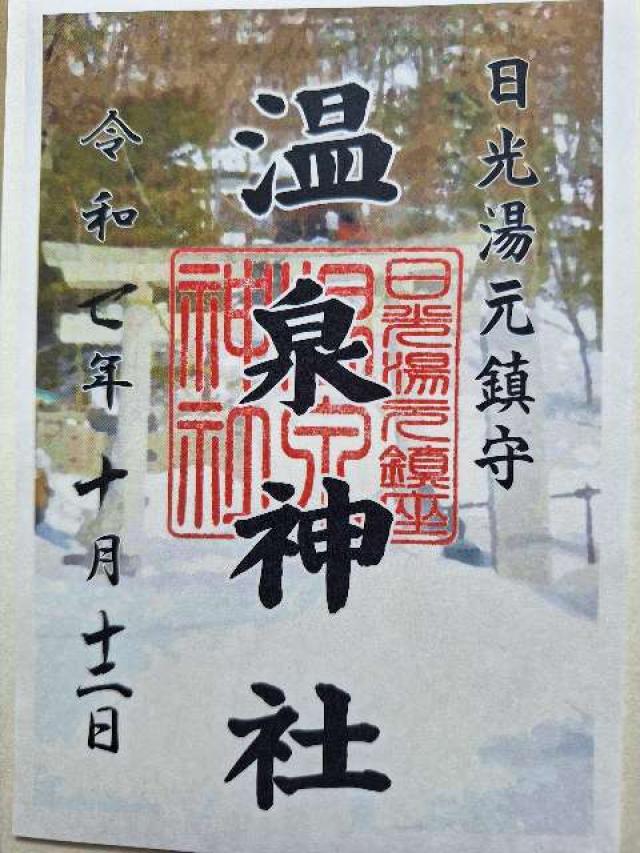 日光湯元鎮守
温泉神社
日光湯元鎮坐
温泉
神社
令和七年十月十二日